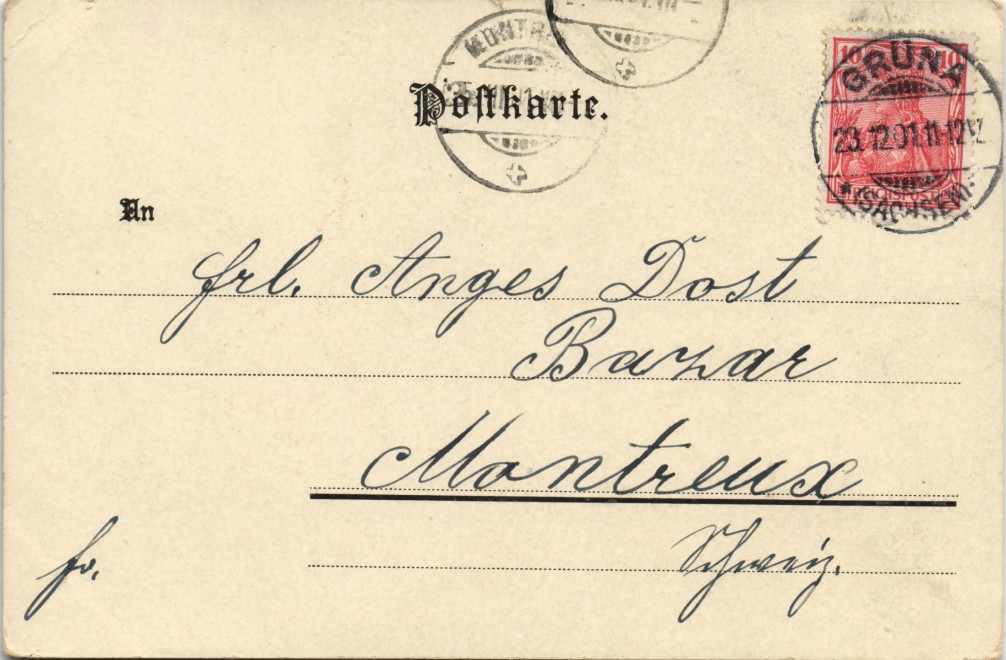 MONTR
Postkarte.
10 10
GRÜNA
23.12.01.11-12V.
REICHSPOST
(SACHSEN).
An
Frl. Anges Dost
Bazar
Montreux
Schweiz.
fr.